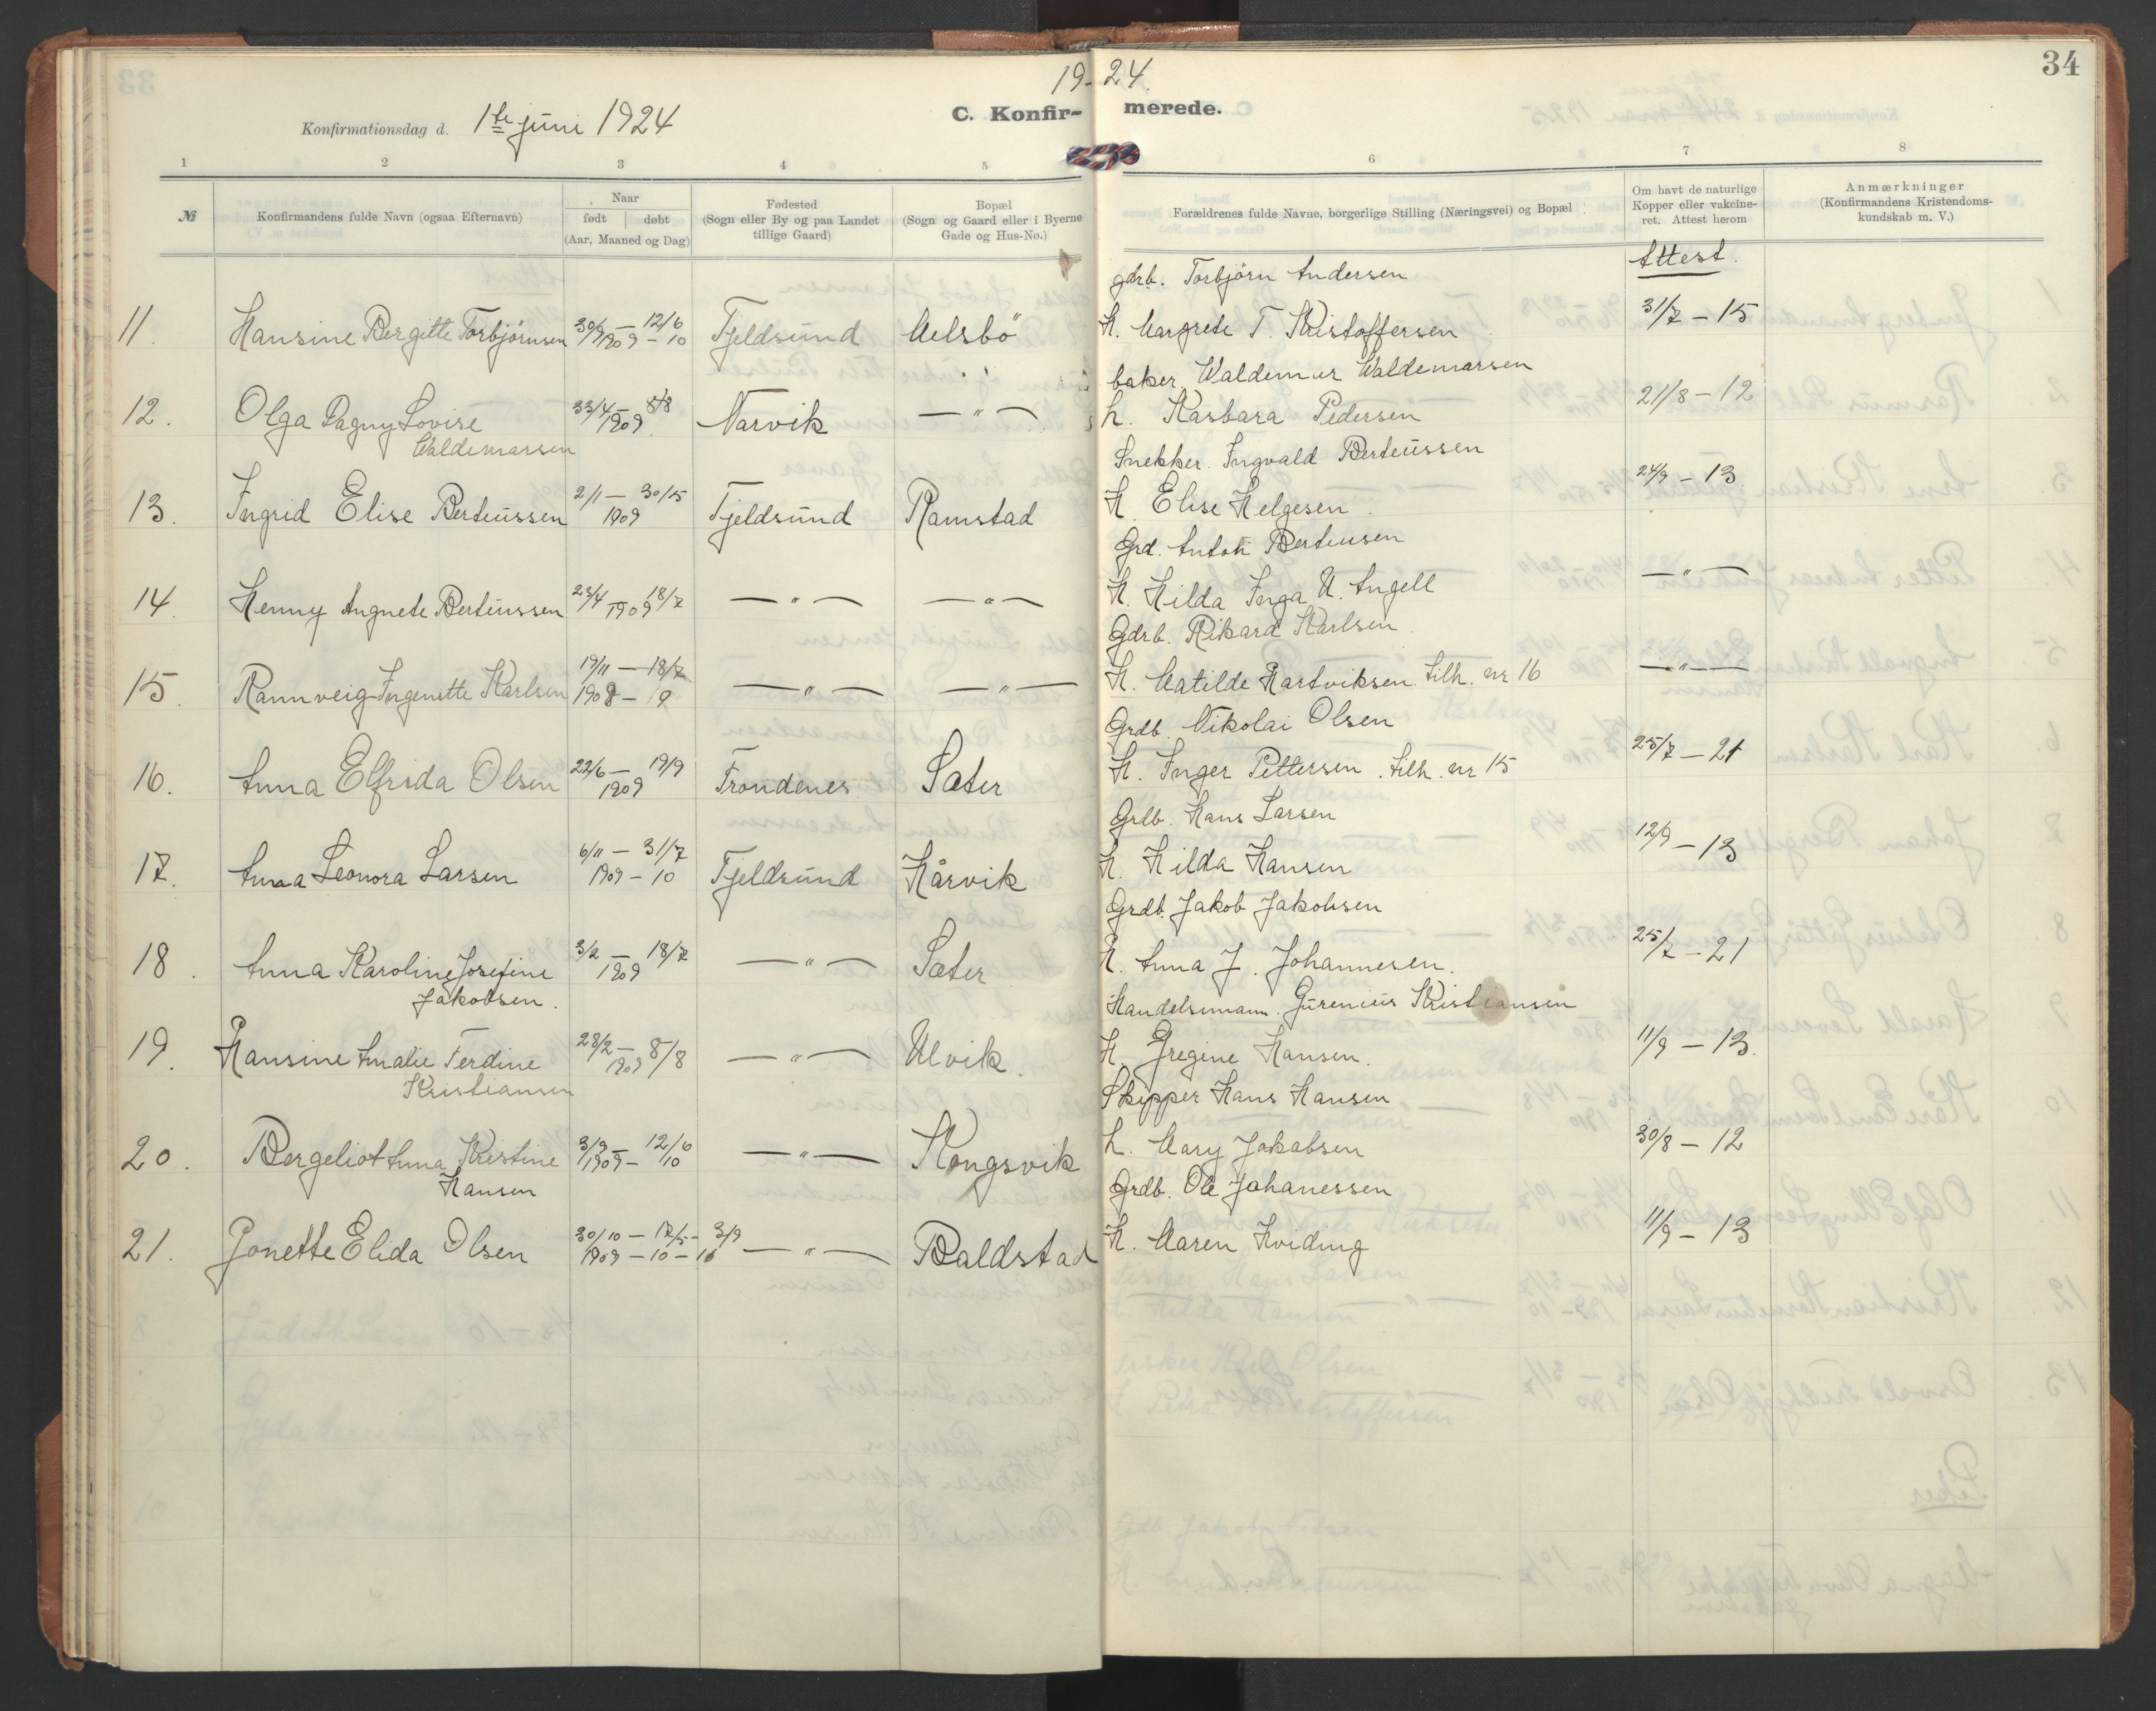 19-24.
34
Konfirmationsdag d. 1ste juni 1924
C. Konfir-merede.
1 2 3 4 5 6 7 8
№
Konfirmandens fulde Navn (ogsaa Efternavn)
Naar
født | døbt
(Aar, Maaned og Dag)
Fødested
(Sogn eller By og paa Landet
tillige Gaard)
Bopæl
(Sogn og Gaard eller i Byerne
Gade og Hus-No.)
Forældrenes fulde Navne, borgerlige Stilling (Næringsvei) og Bopæl
Om havt de naturlige
Kopper eller vakcine-
ret. Attest herom
Anmærkninger
(Konfirmandens Kristendoms-
kundskab m. V.)
Attest.
gdrb. Torbjörn Andersen
11. Hansine Bergitte Torbjörnsen 30/9 — 12/6 1909 – 10 Fjeldsund Melsbö H. Margrete T. Kristoffersen 31/7 – 15
baker. Waldemar Waldemarsen
12. Olga Dagny Lovise 1909 8/8 Narvik — " — h. Kasbara Pedersen 21/8 – 12
Waldemarsen
Snekker. Ingvald Berteussen
13. Ingrid Elise Berteussen 2/1 — 1909 Fjeldsund Ramstad H. Elise Helgesen. 24/9 – 13.
Grd. Anton Berteusen
14. Henny Angnete Berteussen 23/4 – 18/7 1909 — " — — " — H. Hilda Inga U. Angell — " —
Gdrb. Rikard Karlsen
15. Rannveig Ingenette Karlsen 19/11 — 18/7 1908 – 9 — " — — " — H. Matilde Hartviksen tilh. nr 16 — " —
Grdb. Nikolai Olsen
16. Anna Elfrida Olsen 22/6 — 19/9 1909 Trondenes Sæter H. Inger Pettersen. tilh. nr 15 25/7 – 21
Grdb. Hans Larsen
17. Anna Leonora Larsen 6/11 — 31/7 1909 – 10 Fjeldsund Hårvik H. Hilda Hansen 12/9 – 13
Grdb. Jakob Jakobsen
18. Anna Karoline Josefine 3/2 — 18/7 1909 — " — Sæter H. Anna J. Johannesen. 25/7 – 21
Jakobsen.
Handelsmann. Gurenius Kristiansen
19. Hansine Amalie Ferdine 28/2 – 8/8 1909 — " — Ulvik. H. Gregine Hansen. 11/9 – 13.
Kristiansen
Skipper Hans Hansen
20. Bergeliot Anna Kristine 3/9 — 12/6 1909 – 10 — " — Kongsvik h. Mary Jakobsen 30/8 – 12
Hansen
Grdb. Ole Johanessen
21. Jonette Elida Olsen 30/10 – 17/5 – 3/9 1909 – 10 – 16 — " — Baldstad H. Maren Hviding 11/9 – 13